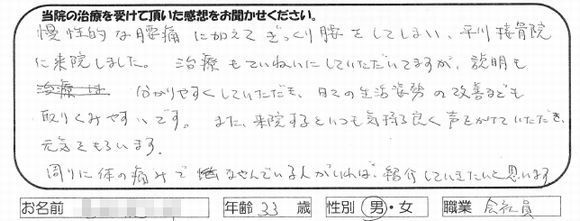 当院の治療を受けて頂いた感想をお聞かせください。
慢性的な腰痛に加えてぎっくり腰をしてしまい、平川接骨院
に来院しました。治療もていねいにしていただいてますが、説明も
治療は 分かりやすくしていただき、日々の生活姿勢の改善なども
取りくみやすいです。また、来院するといつも気持ち良く声をかけていただき、
元気をもらいます。
周りに体の痛みで悩なやんでいる人がいれば、紹介していきたいと思います
お名前 年齢 33 歳 性別 男・女 職業 会社員